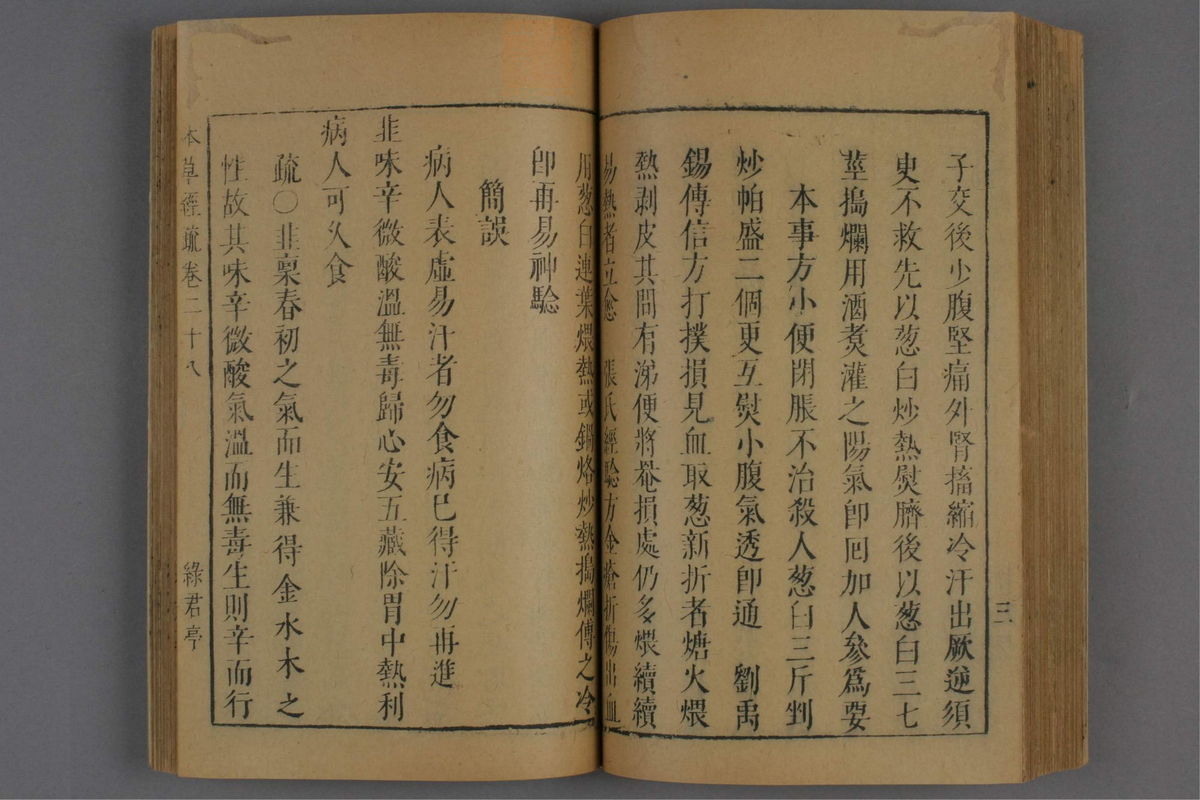 三
子交後少腹堅痛外腎搐縮冷汗出厥逆須
臾不救先以葱白炒熱熨臍後以葱白三七
莖搗爛用酒煑灌之陽氣卽囘加人參爲要
本事方小便閉脹不治殺人葱白三斤剉
炒帕盛二個更互熨小腹氣透卽通 劉禹
錫傳信方打撲損見血取葱新折者煻火煨
熱剥皮其間有涕便將罨損處仍多煨續續
易熱者立愈 張氏經驗方金瘡折傷出血
用葱白連葉煨熱或鍋烙炒熱搗爛傅之冷
卽再易神驗
簡誤
病人表虛易汗者勿食病已得汗勿再進
韭味辛微酸溫無毒歸心安五藏除胃中熱利
病人可久食
疏〇韭稟春初之氣而生兼得金水木之
性故其味辛微酸氣溫而無毒生則辛而行
本草經疏卷二十八 綠君亭